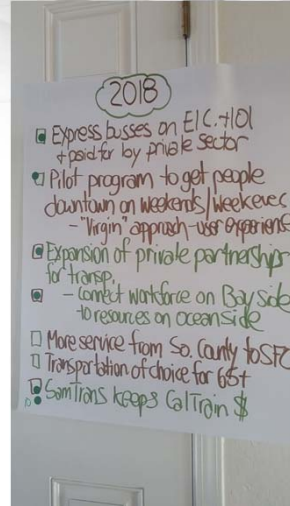 2018
Express busses on EIC. + 101
+ paid for by private sector
Pilot program to get people
downtown on weekends/weekeves
- "Virgin" approach - user experience
Expansion of private partnerships
for transp.
- Connect workforce on Bay side
to resources on oceanside
More service from So. County to SFO
Transportation of choice for 65+
SamTrans keeps CalTrain $